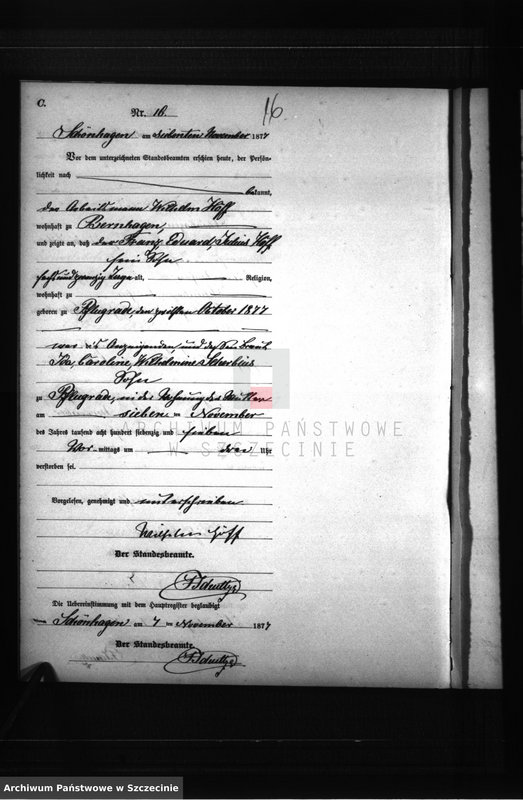 C.
Nr. 16.
16
Schönhagen am siebenten November 1877
Vor dem unterzeichneten Standesbeamten erschien heute, der Persön-
lichkeit nach
bekannt,
der Arbeitsmann Wilhelm Höff
wohnhaft zu Bernhagen,
und zeigte an, daß der Franz, Eduard, Julius Höff
sein Sohn
sechsundzwanzig Tage alt, Religion,
wohnhaft zu
geboren zu Pflugrade, den zwölften October 1877
Ida, Caroline, Wilhelmine
Sohn
zu Pflugrade, in der Wohnung der Mutter
am sieben ten November
des Jahres tausend acht hundert siebenzig und sieben
Vor mittags um drei Uhr
verstorben sei.
Vorgelesen, genehmigt und unterschrieben
Wilhelm Höff
Der Standesbeamte.
FSchultze
Die Uebereinstimmung mit dem Hauptregister beglaubigt
Schönhagen am 7 ten November 1877
Der Standesbeamte.
FSchultze
ARCHIWUM PAŃSTWOWE
W SZCZECINIE
Archiwum Państwowe w Szczecinie